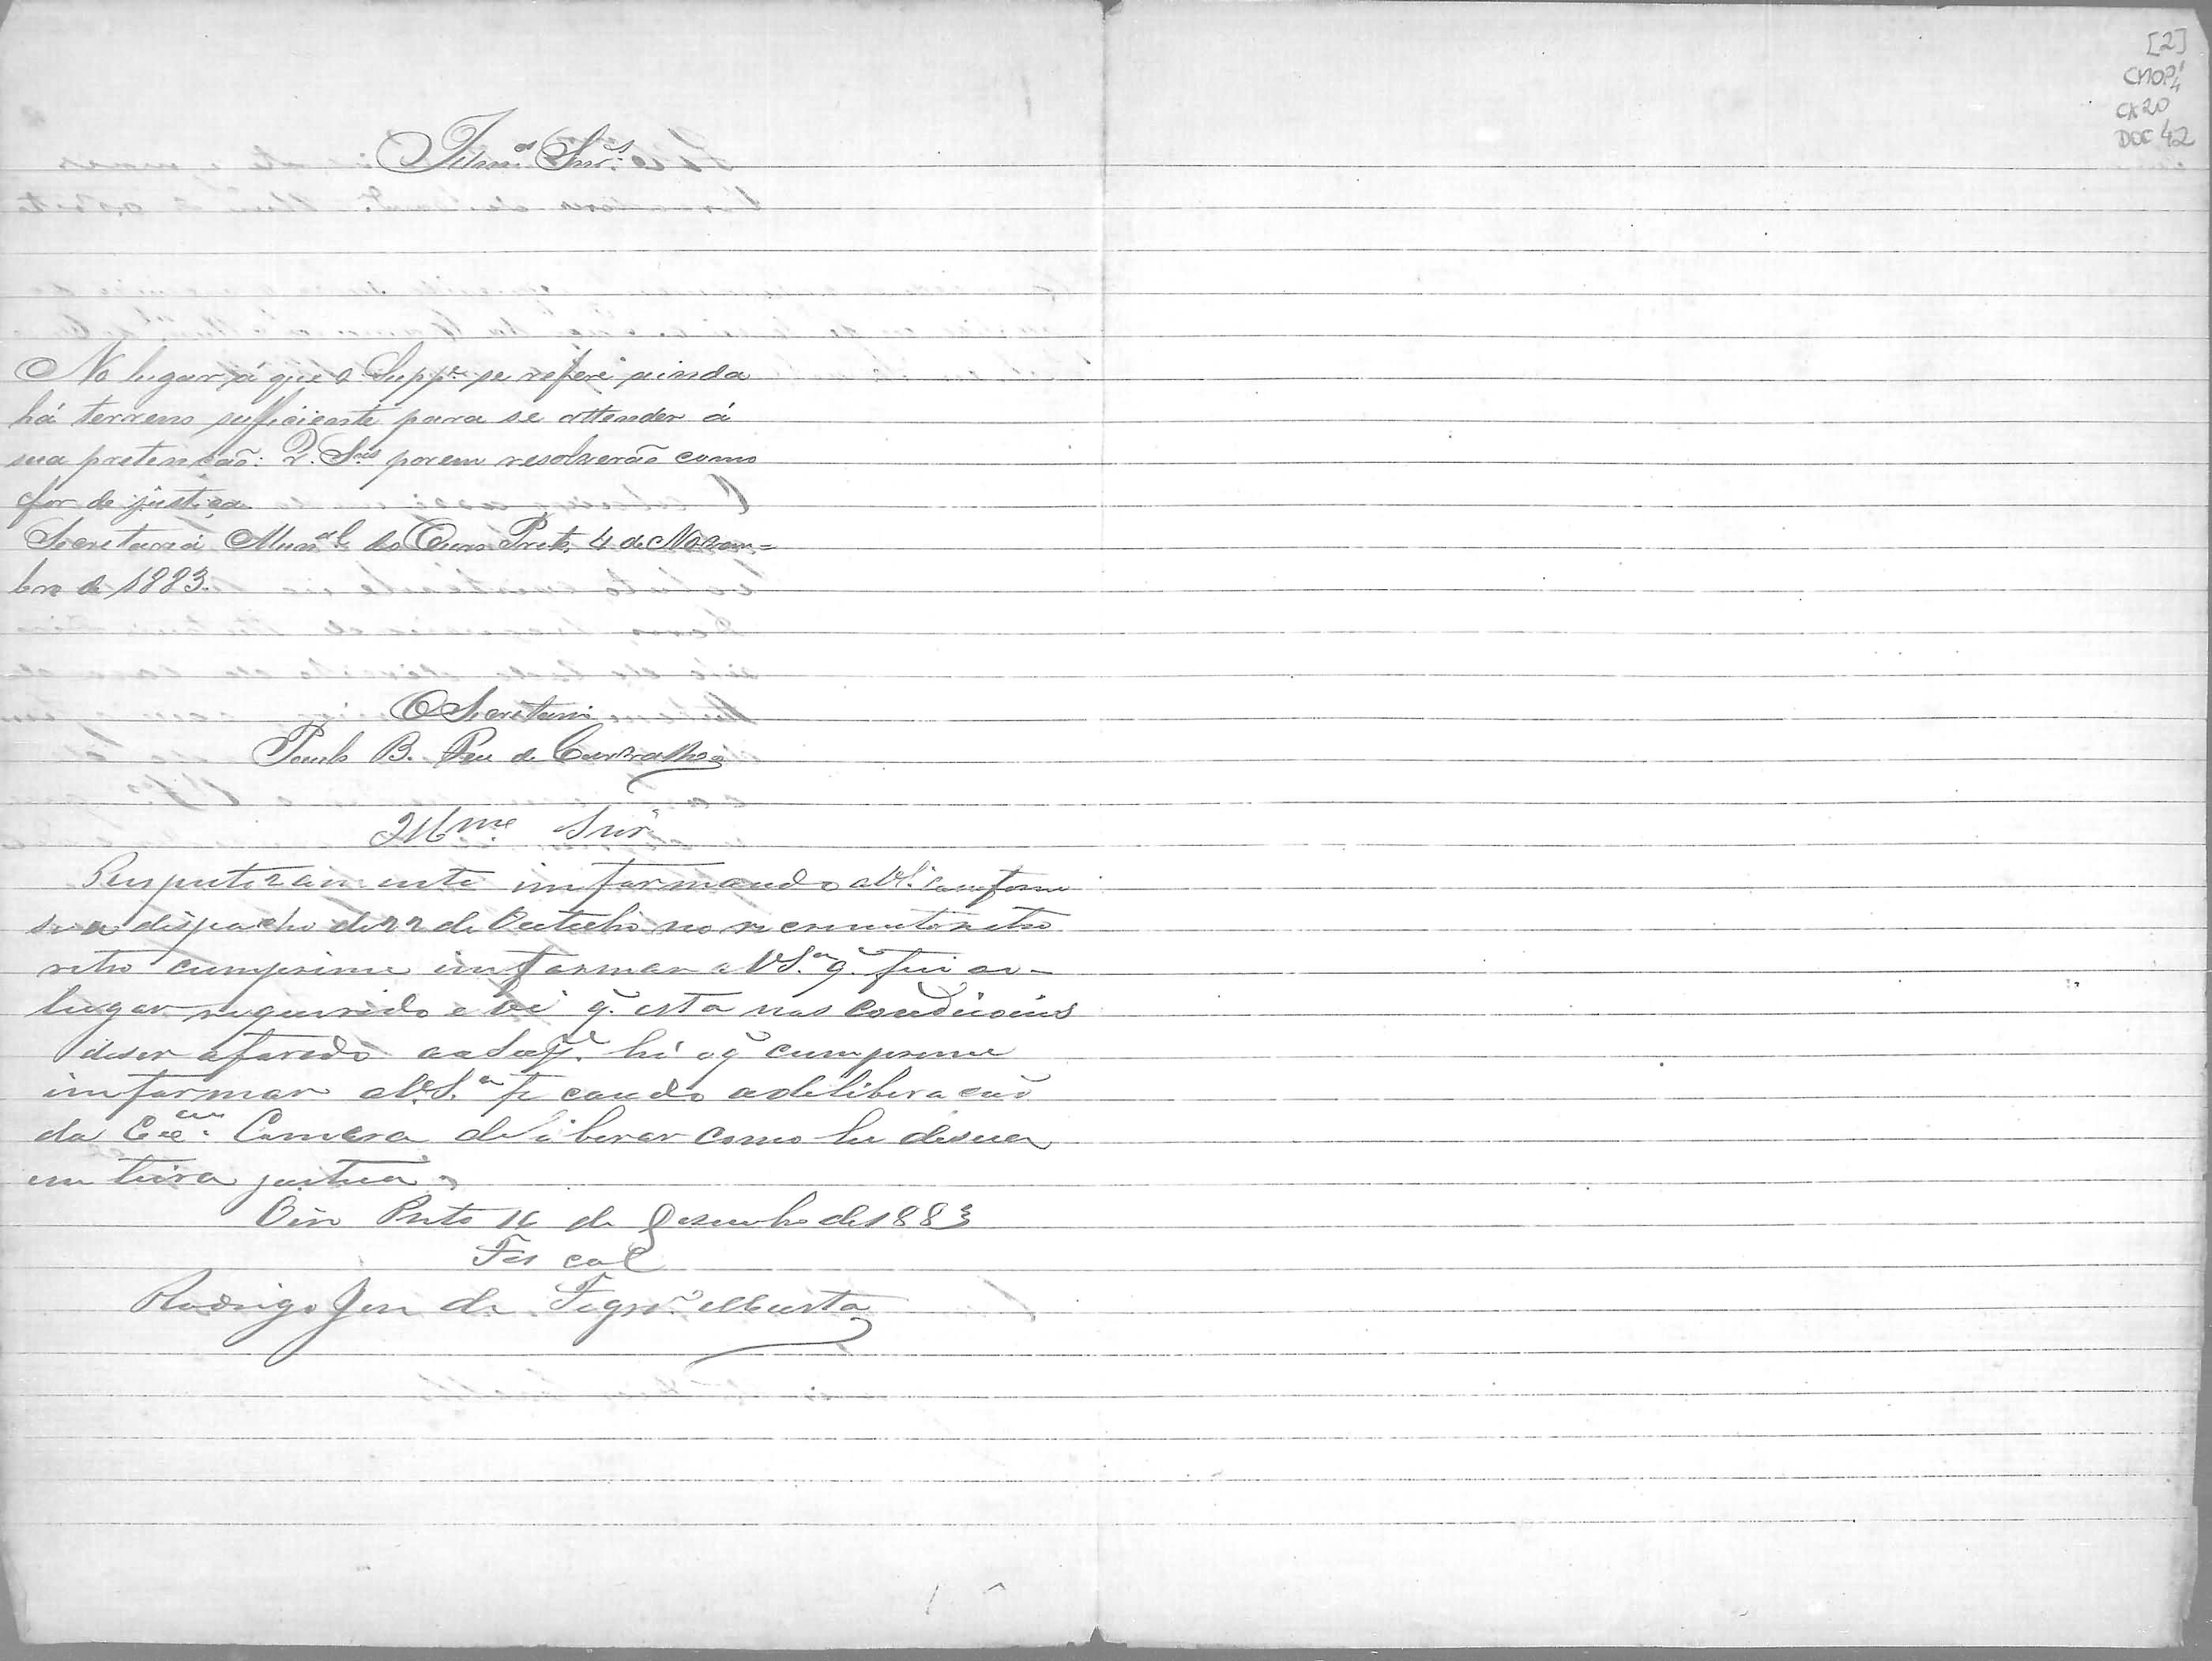 [2]
CMOP
CX20
DOC 42
Illmos Snrs
No lugar á que o Suppe se refere ainda
há terreno sufficiente para se attender á
sua pretenção: V. Sas porem resolverão como
for de justiça.
Secretaria Munal do Ouro Preto, 4 de Novem=
bro de 1883.
O Secretario
Paulo B. de Carvalho
Illme Snr
informando a V.S. conforme
seu dispacho de 22 de Outubro no
retro cumprime informar a V S.a q. fui ao
lugar requerido e vi q. esta nas condicoins
deser aforado ao Sup.e hé oq cumprime
informar a V.S.a ficando adeliberacão
da Exma Camera deliberar como he desua
inteira justica
Oiro Preto 16 de Desembro de 1883
Fiscal
Rodrigo José de Figrdo Murta